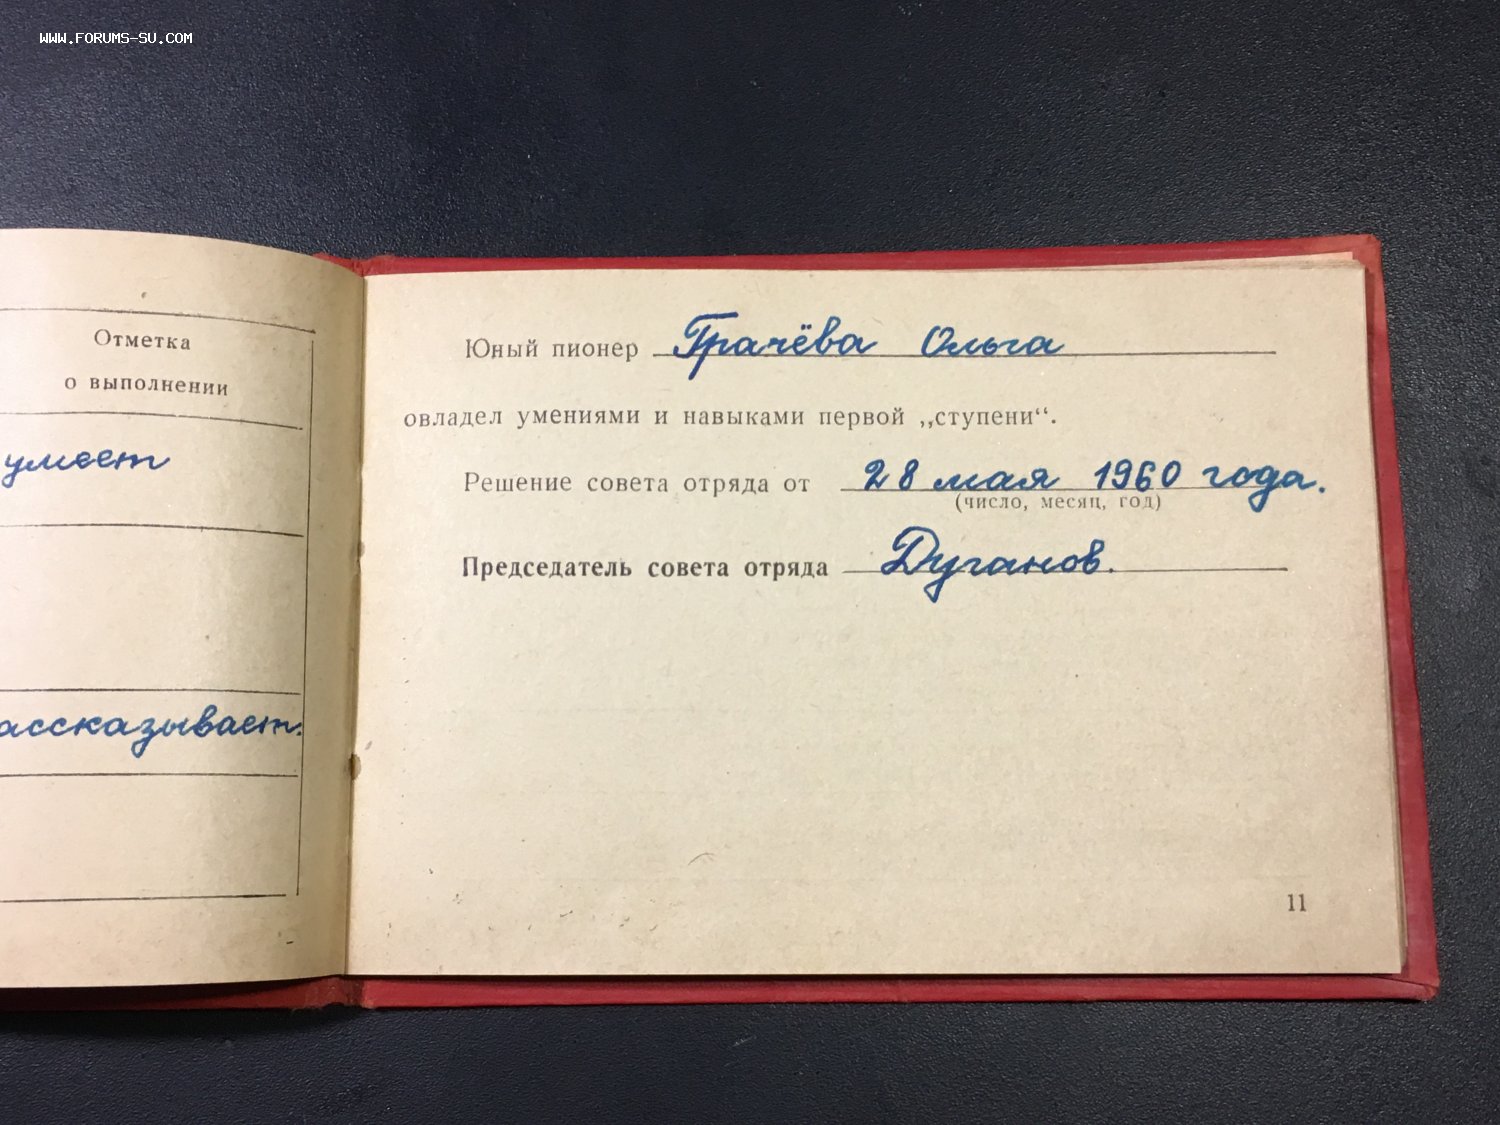 WWW.FORUMS-SU.COM
Отметка
о выполнении
умеет
ассказывает.
Юный пионер Грачёва Ольга
овладел умениями и навыками первой „ступени“.
Решение совета отряда от 28 мая 1960 года.
(число, месяц, год)
Председатель совета отряда Дуганов.
11